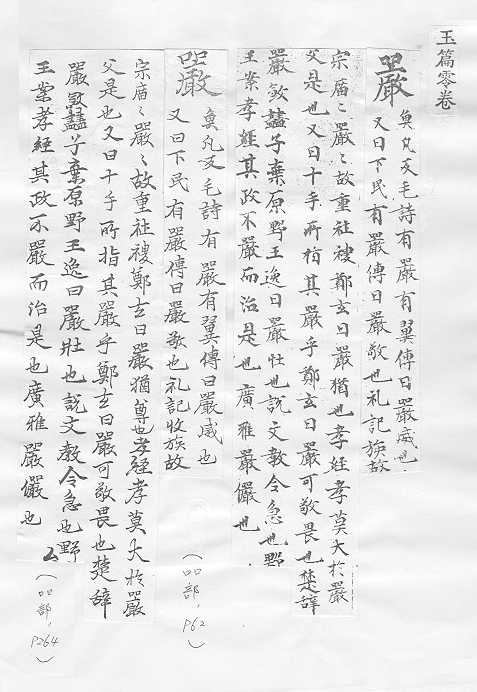 玉篇零卷
嚴 魚凡反毛詩有嚴有翼傳曰嚴威也
又曰下民有嚴傳曰嚴敬也礼記族故
宗庿〻嚴〻故重社禝鄭玄曰嚴猶也孝経孝莫大於嚴
父是也又曰十手所指其嚴乎鄭玄曰嚴可敬畏也楚辞
嚴子棄原野王逸曰嚴壮也説文教令急也野
王案孝経其政不嚴而治是也廣雅嚴儼也
(吅部, P62)
嚴 魚凡反毛詩有嚴有翼傳曰嚴威也
又曰下民有嚴傳曰嚴敬也礼記收族故
宗庿〻嚴〻故重社禝鄭玄曰嚴猶尊也孝経孝莫大於嚴
父是也又曰十手所指其嚴乎鄭玄曰嚴可敬畏也楚辞
嚴子棄原野王逸曰嚴壮也説文教令急也野
王案孝経其政不嚴而治是也廣雅嚴儼也
(吅部, P264)